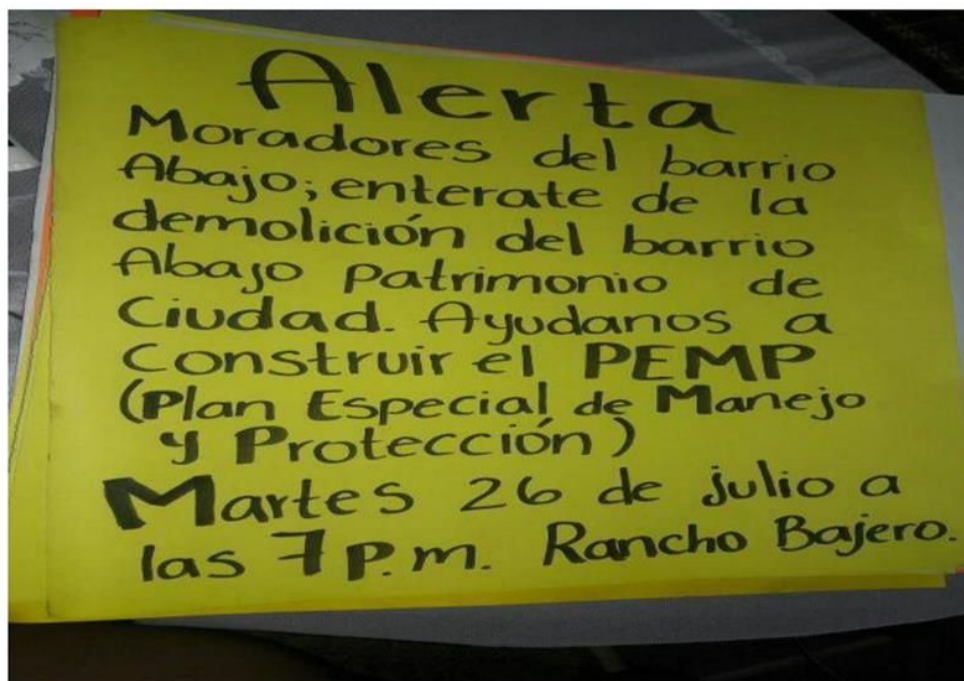 Alerta
Moradores del barrio
Abajo; enterate de la
demolición del barrio
Abajo patrimonio de
Ciudad. Ayudanos a
Construir el PEMP
(Plan Especial de Manejo
y Protección)
Martes 26 de julio a
las 7 P.m. Rancho Bajero.